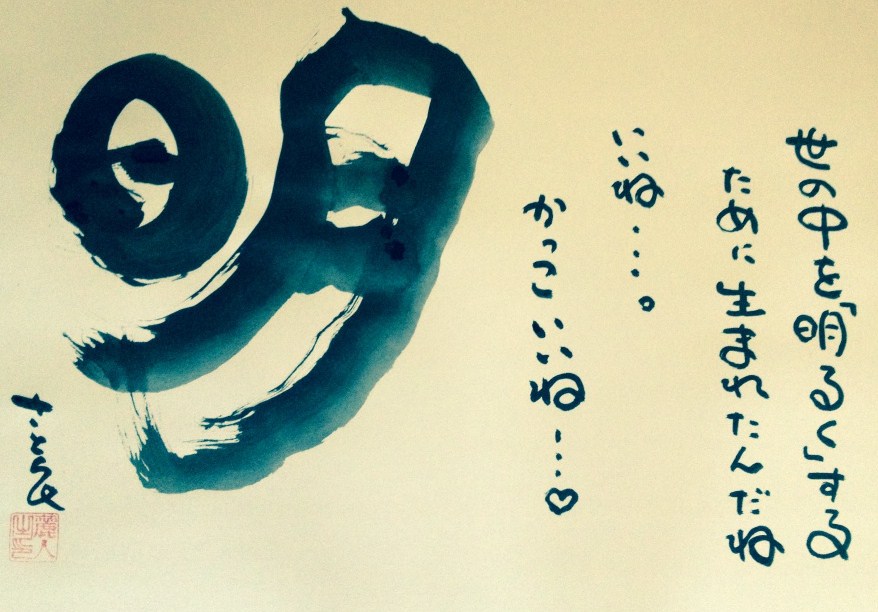 世の中を「明るく」する
ために生まれたんだね
いいね・・・。
かっこいいね・・・♡
明